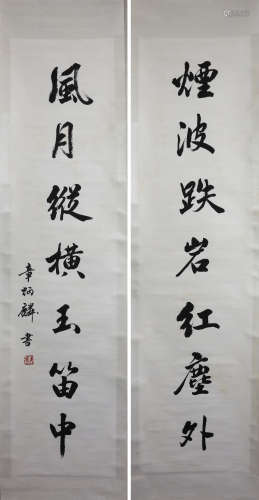 煙波跌岩紅塵外
風月縱橫玉笛中
章炳麟書